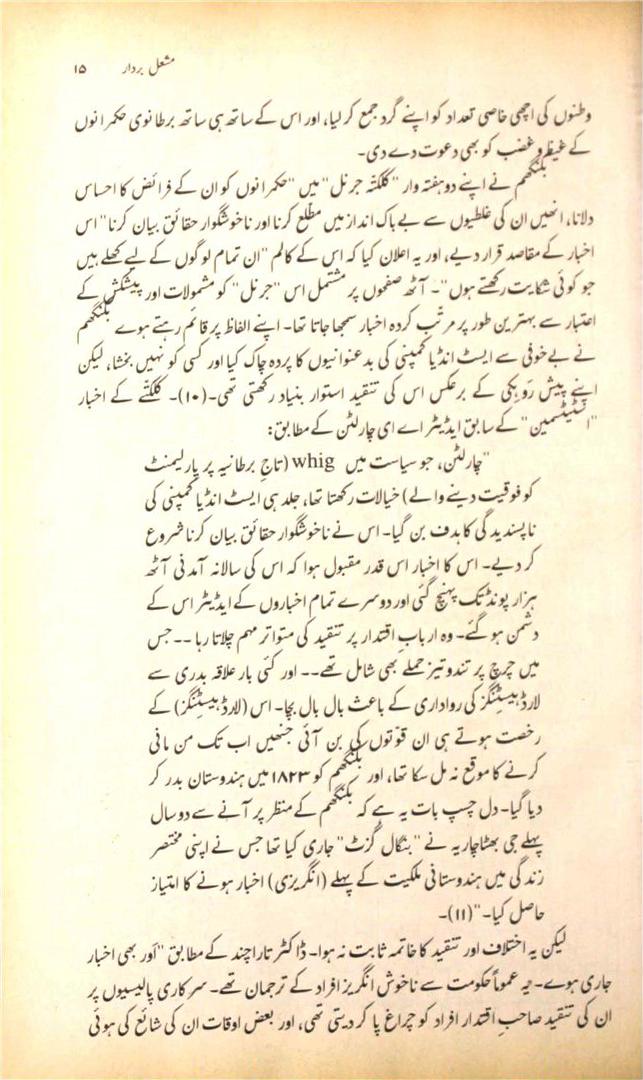 مشعل بردار ۱۵
وطنوں کی اچھی خاصی تعداد کو اپنے گرد جمع کر لیا، اور اس کے ساتھ ہی ساتھ برطانوی حکمرانوں
کے غیظ و غضب کو بھی دعوت دے دی۔
بکنگھم نے اپنے دو ہفتہ وار "کلکتّہ جرنل" میں "حکمرانوں کو ان کے فرائض کا احساس
دلانا، انھیں ان کی غلطیوں سے بے باک انداز میں مطلع کرنا اور ناخوشگوار حقائق بیان کرنا" اس
اخبار کے مقاصد قرار دیے، اور یہ اعلان کیا کہ اس کے کالم "ان تمام لوگوں کے لیے کھلے ہیں
جو کوئی شکایت رکھتے ہوں"۔ آٹھ صفحوں پر مشتمل اس "جرنل" کو مشمولات اور پیشکش کے
اعتبار سے بہترین طور پر مرتّب کردہ اخبار سمجھا جاتا تھا۔ اپنے الفاظ پر قائم رہتے ہوے بکنگھم
نے بے خوفی سے ایسٹ انڈیا کمپنی کی بدعنوانیوں کا پردہ چاک کیا اور کسی کو نہیں بخشا، لیکن
اپنے پیش رَو ہِکی کے برعکس اس کی تنقید استوار بنیاد رکھتی تھی۔(۱۰)۔ کلکتّے کے اخبار
"اسٹیٹسمین" کے سابق ایڈیٹر اے ای چارلٹن کے مطابق:
"چارلٹن، جو سیاست میں whig (تاجِ برطانیہ پر پارلیمنٹ
کو فوقیت دینے والے) خیالات رکھتا تھا، جلد ہی ایسٹ انڈیا کمپنی کی
ناپسندیدگی کا ہدف بن گیا۔ اس نے ناخوشگوار حقائق بیان کرنا شروع
کر دیے۔ اس کا اخبار اس قدر مقبول ہوا کہ اس کی سالانہ آمدنی آٹھ
ہزار پونڈ تک پہنچ گئی اور دوسرے تمام اخباروں کے ایڈیٹر اس کے
دشمن ہو گئے۔ وہ اربابِ اقتدار پر تنقید کی متواتر مہم چلاتا رہا -- جس
میں چرچ پر تند و تیز حملے بھی شامل تھے -- اور کئی بار علاقہ بدری سے
لارڈ ہیسٹنگز کی رواداری کے باعث بال بال بچا۔ اس (لارڈ ہیسٹنگز) کے
رخصت ہوتے ہی ان قوّتوں کی بن آئی جنھیں اب تک من مانی
کرنے کا موقع نہ مل سکا تھا، اور بکنگھم کو ۱۸۲۳ میں ہندوستان بدر کر
دیا گیا۔ دل چسپ بات یہ ہے کہ بکنگھم کے منظر پر آنے سے دو سال
پہلے جی بھٹاچاریہ نے "بنگال گزٹ" جاری کیا تھا جس نے اپنی مختصر
زندگی میں ہندوستانی ملکیت کے پہلے (انگریزی) اخبار ہونے کا امتیاز
حاصل کیا۔"(۱۱)۔
لیکن یہ اختلاف اور تنقید کا خاتمہ ثابت نہ ہوا۔ ڈاکٹر تارا چند کے مطابق "اَور بھی اخبار
جاری ہوے۔ یہ عموماً حکومت سے ناخوش انگریز افراد کے ترجمان تھے۔ سرکاری پالیسیوں پر
ان کی تنقید صاحبِ اقتدار افراد کو چراغ پا کر دیتی تھی، اور بعض اوقات ان کی شائع کی ہوئی